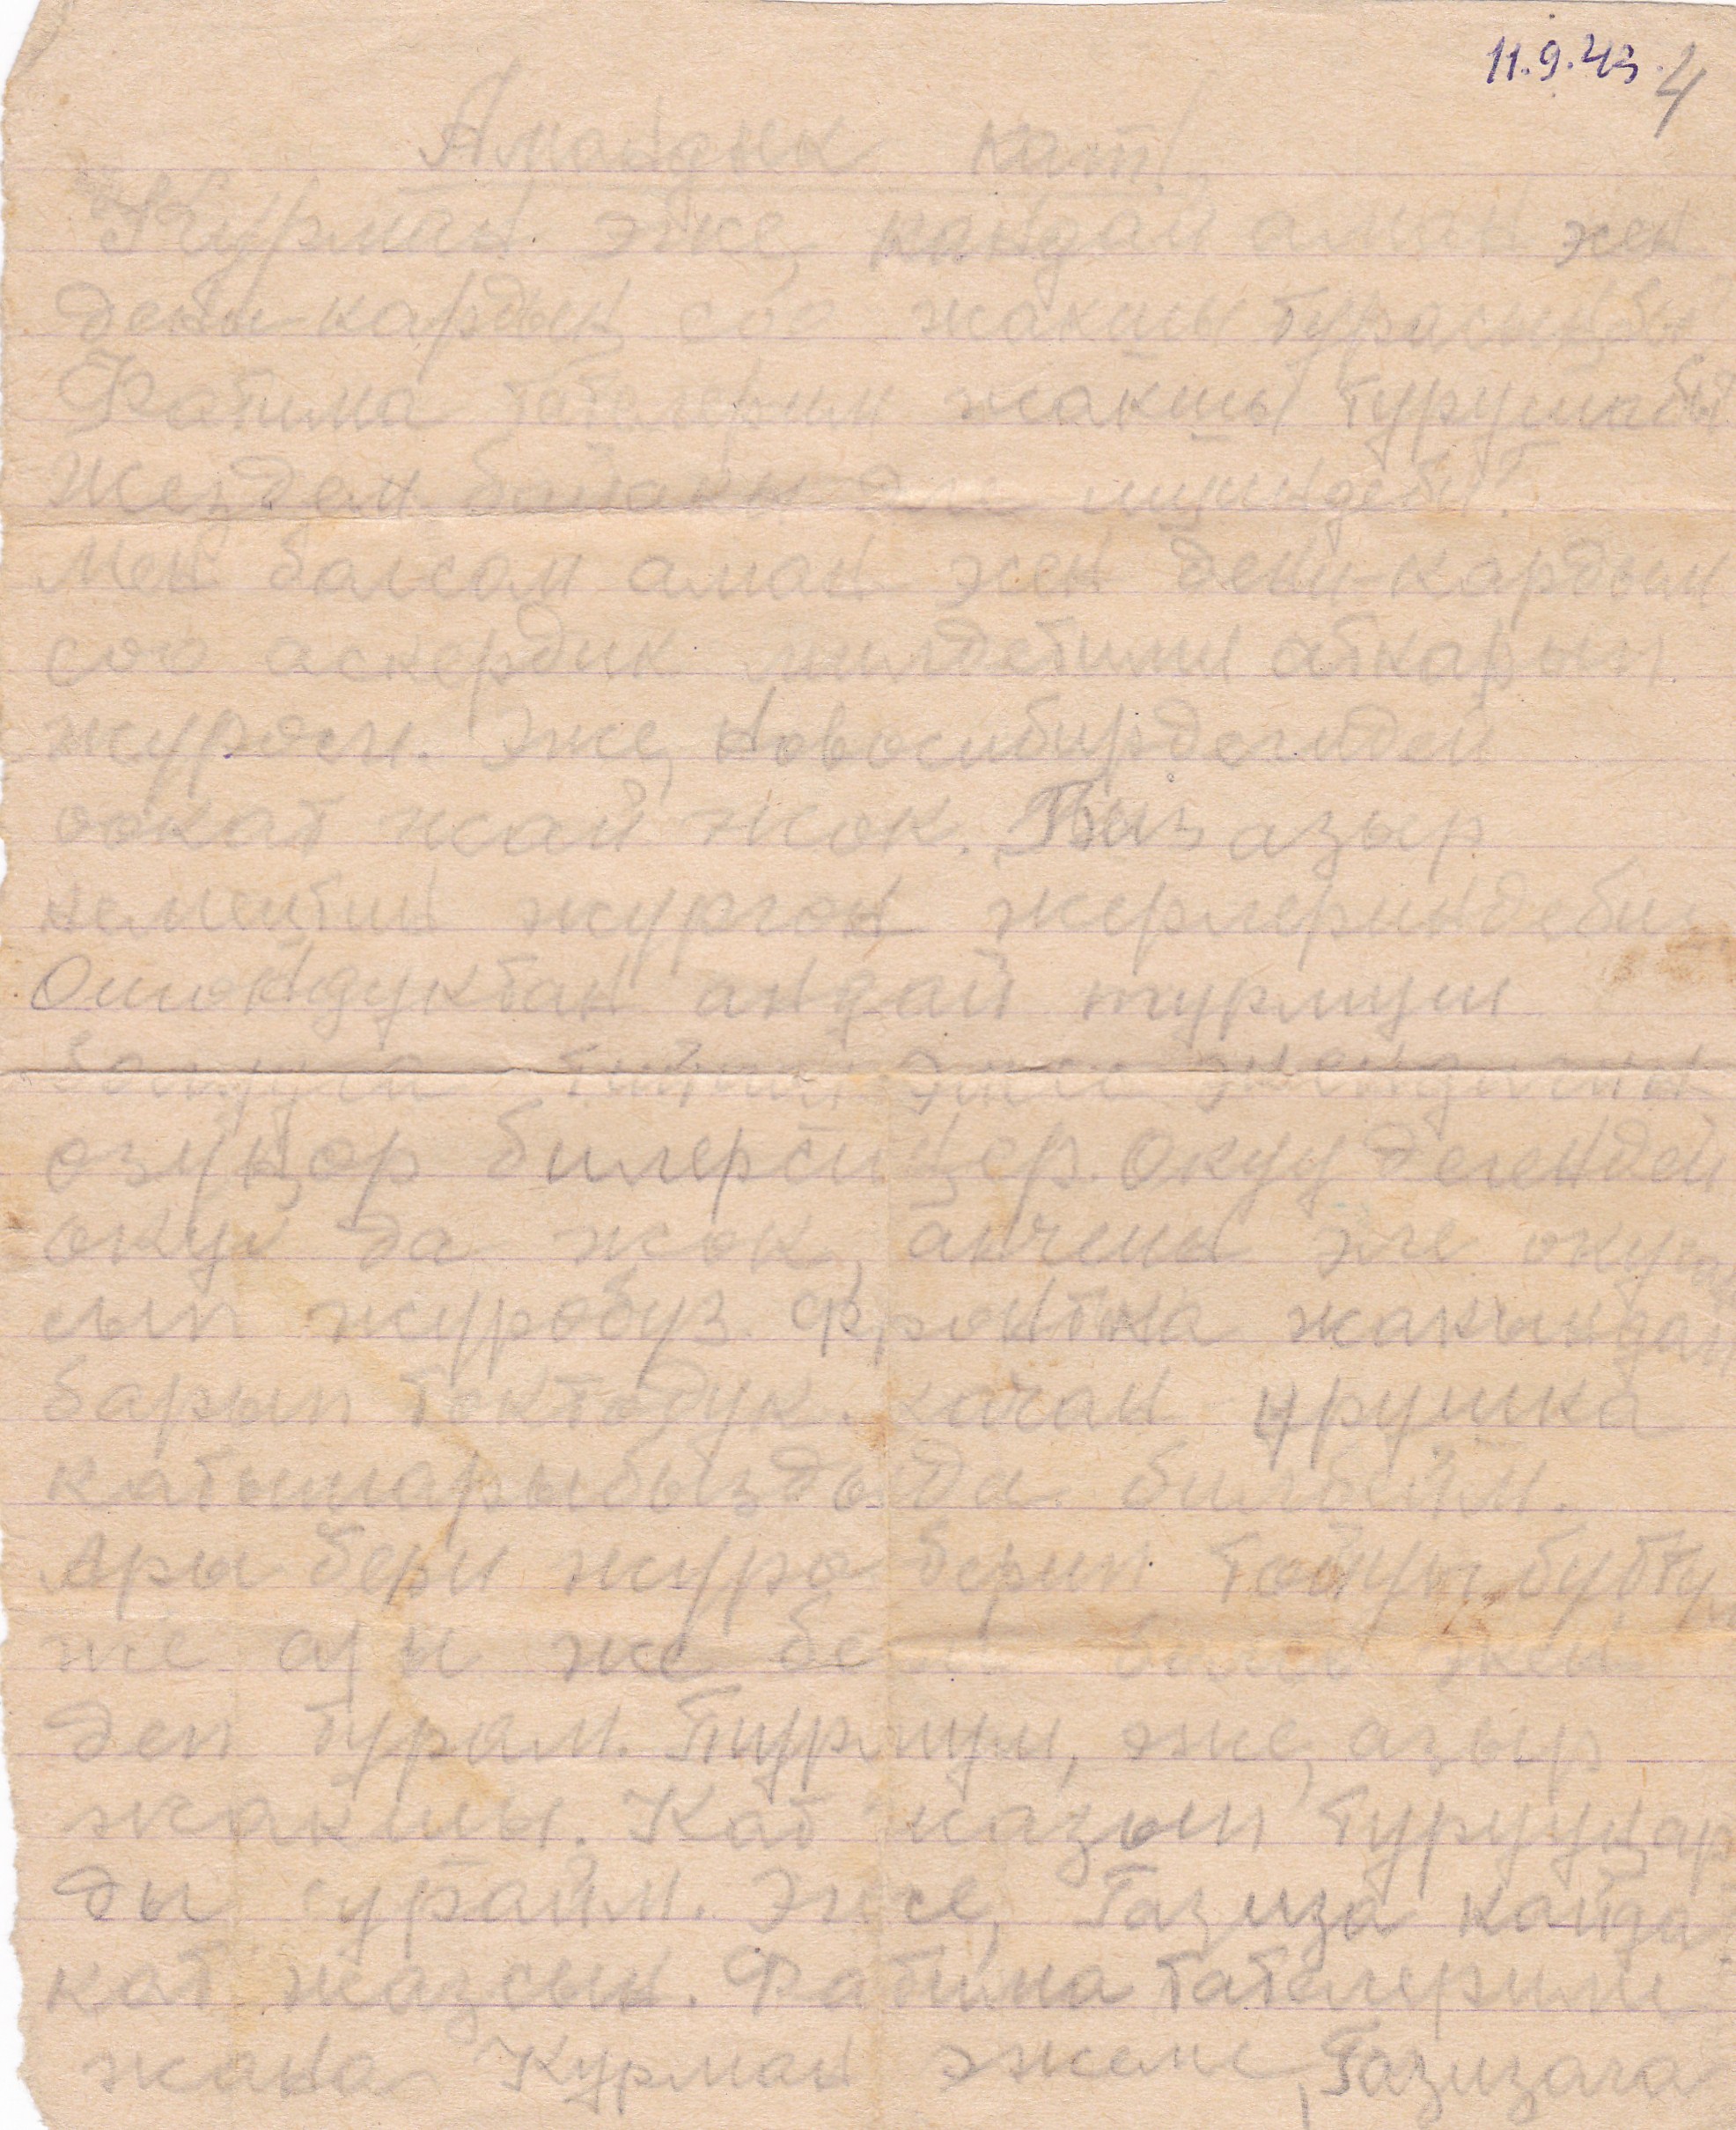 11.9.43. 4
Амандык кат!
Курман эже, кандай аман эсен
дени-кардың соо жакшы турасыңбы?
Фатима тателерим жакшы турушабы?
Жездем баягы эле
Мен болсом аман эсен дени-кардым
соо аскердик милдетими аткарып
журом. Эже, Новосибирдегидей
оокат жай жок. Биз азыр
немецтин жургон жерлериндебиз
Ошондуктан андай турмуш
болууга тийиш эмес экендигин
озуңор билерсиңер. Окуу дегендей
окуу да жок, анчемин эле окуган
сып журобуз. Фронтка жакындап
барып токтодук. качан урушка
катышарыбызды да билбейм.
Ары бери журо берип тойуп буттум
же ары же бери болсо экен
деп турам. Турмуш, эже, азыр
жакшы. Кат жазып турууңар
ды сурайм. Эже, Газиза кайда
кат жазсын. Фатима тателериме
жана Курман эжеме, Газизага